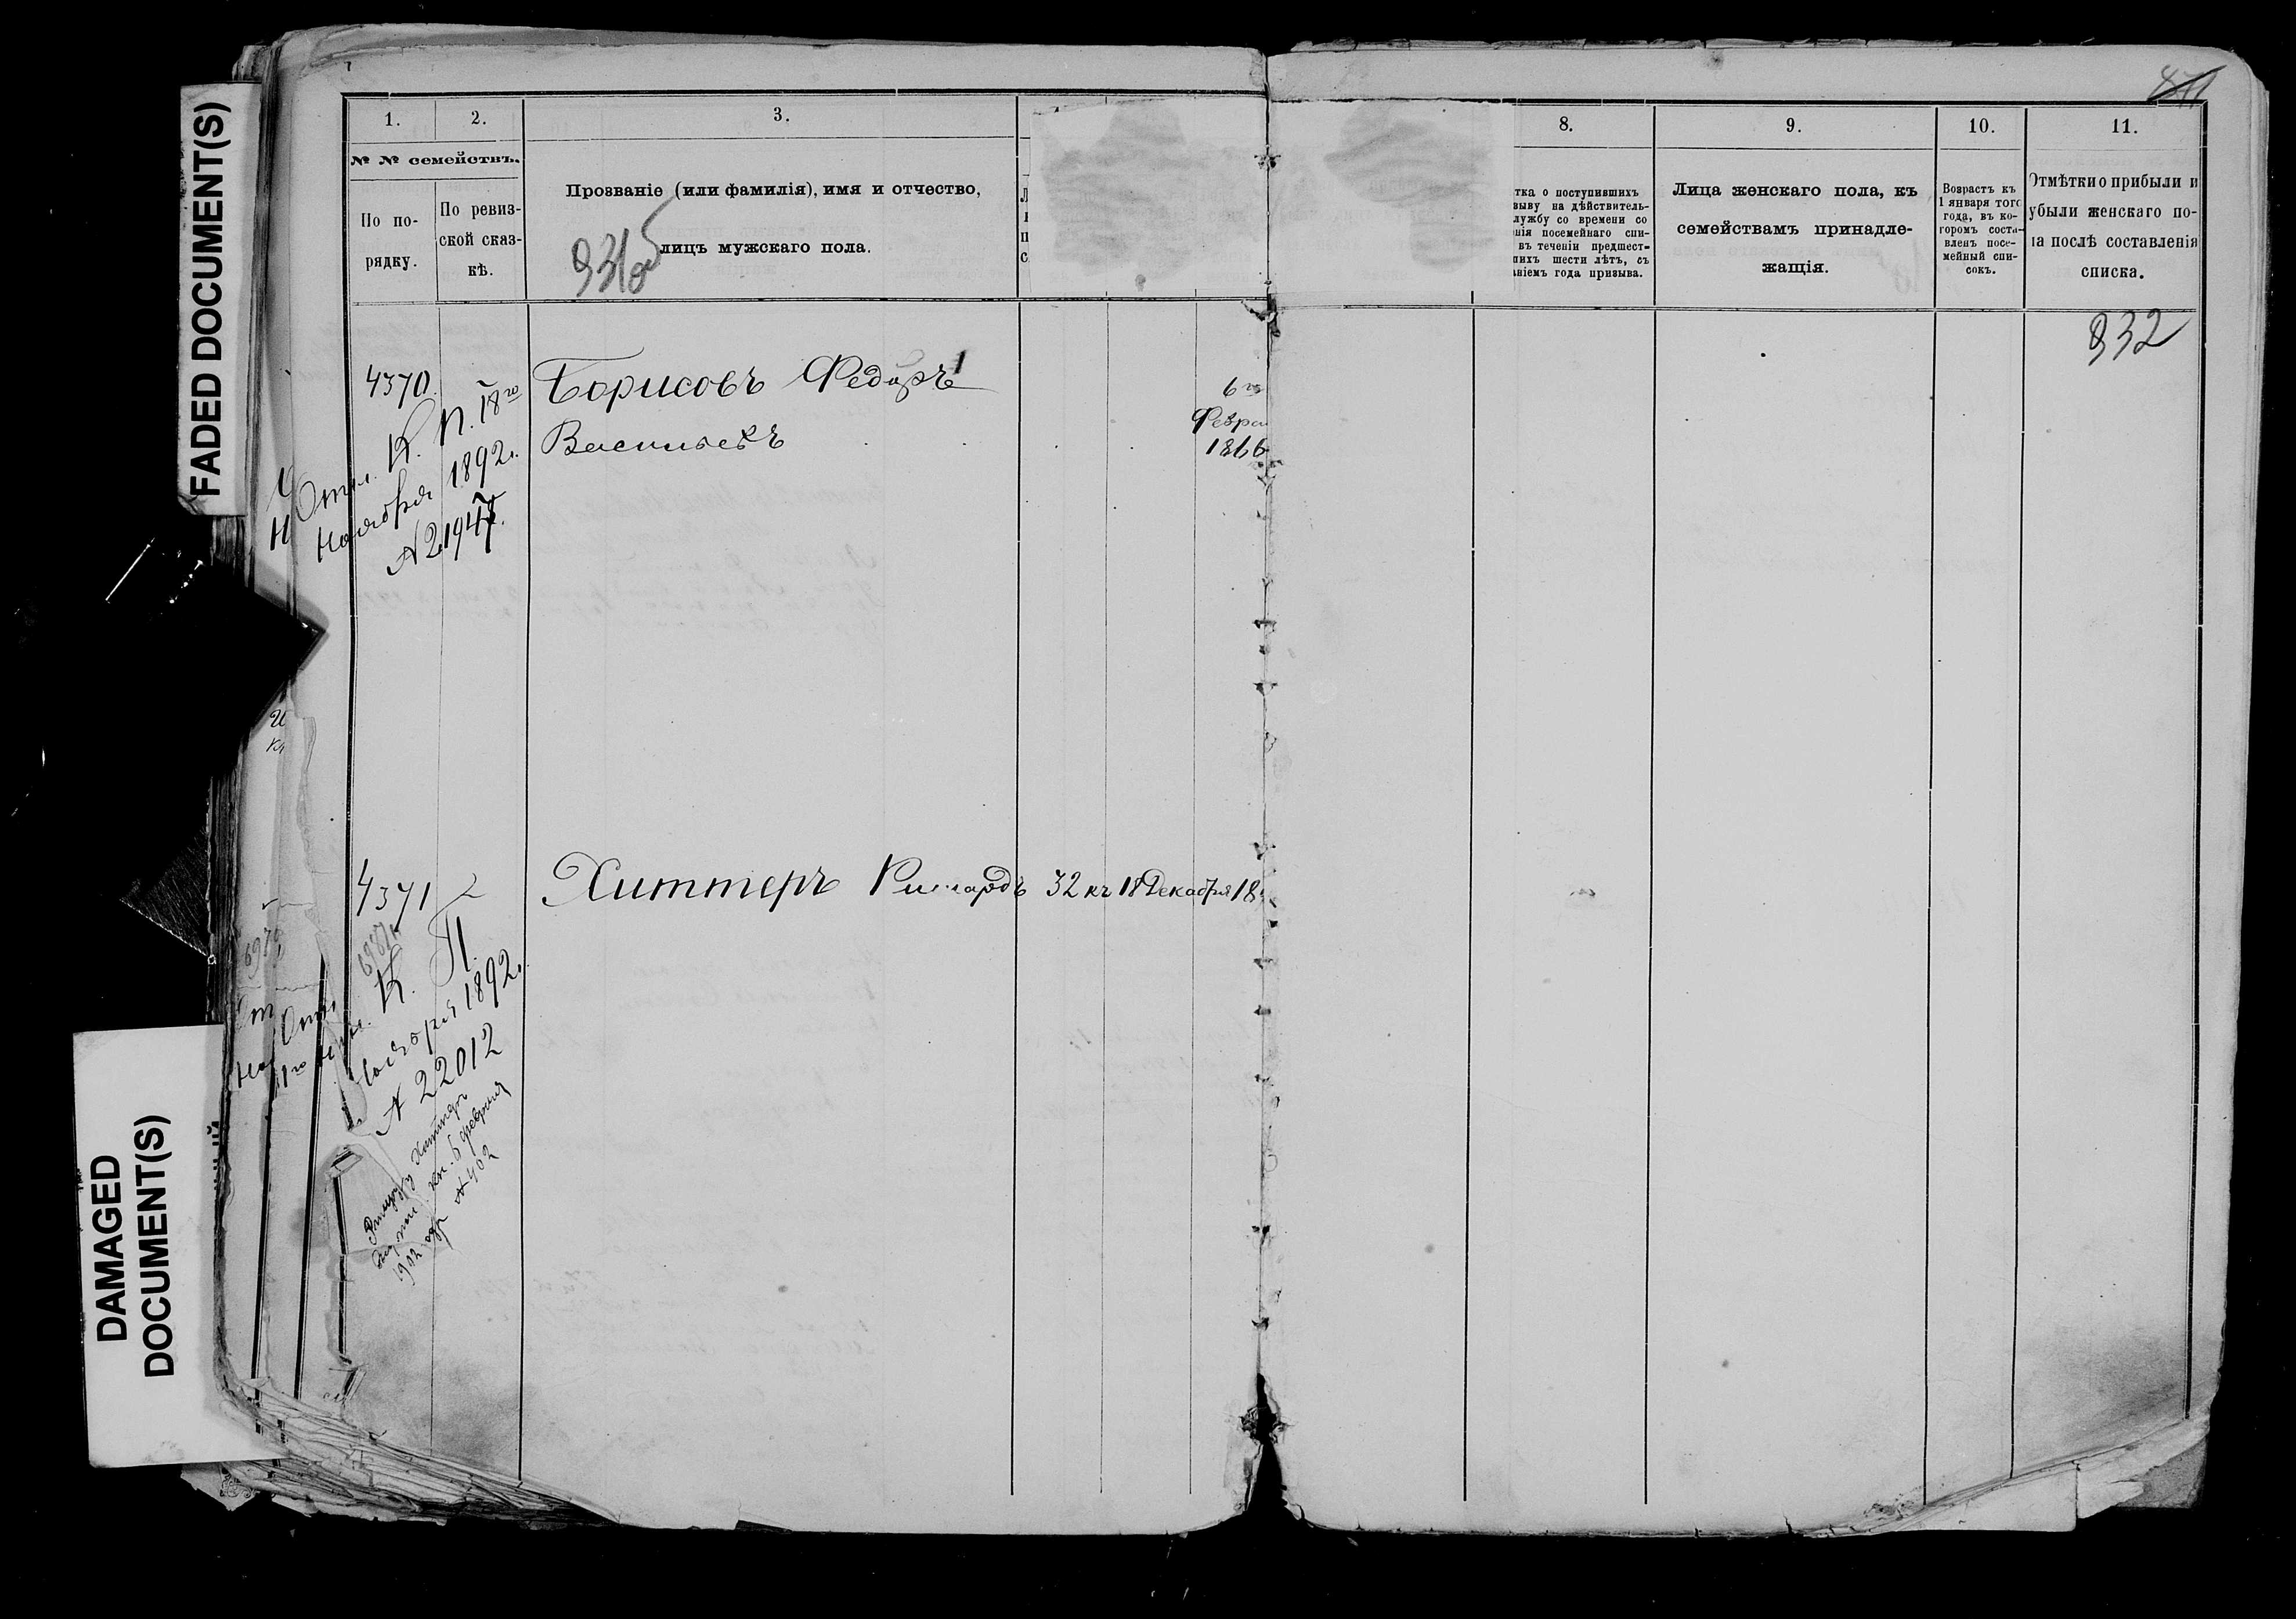 FADED DOCUMENT(S)
DAMAGED
DOCUMENT(S)
1.
2.
3.
№ № семействъ.
По по-
рядку.
По ревиз-
ской сказ-
кѣ.
Прозваніе (или фамилія), имя и отчество,
лицъ мужскаго пола.
8.
тка о поступившихъ
зыву на дѣйствитель-
лужбу со времени со
нія посемейнаго спи-
въ теченіи предшест-
шихъ шести лѣтъ, съ
аніемъ года призыва.
9.
Лица женскаго пола, къ
семействамъ принадле-
жащія.
10.
Возрастъ къ
1 января того
года, въ ко-
торомъ соста-
вленъ посе-
мейный спи-
сокъ.
11.
Отмѣтки о прибыли и
убыли женскаго по-
ла послѣ составленія
списка.
932
4370
Борисовъ Федоръ 1
Васильевъ
6го
Февра
1866
Отт. К. П. 18го
Ноября 1892г.
4371
Хиттеръ Ричардъ 32 къ 18 Декабря 18
К. П.
Ноября 1892г.
№ 22012
6 февраля
1902
№ 402